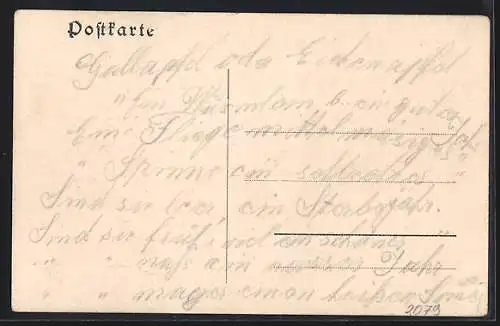 Postkarte
Gallapfel oder Eichenapfel
" Ein Würmlein b. ein gutes
Eine Fliege mittelmäsiges Jahr
" Spinne ein schlechtes "
Sind sie leer, ein Sterbejahr.
Sind sie früh, viel ein schönes
" " naß ein nasses Jahr
" " mager einen heißen
2073